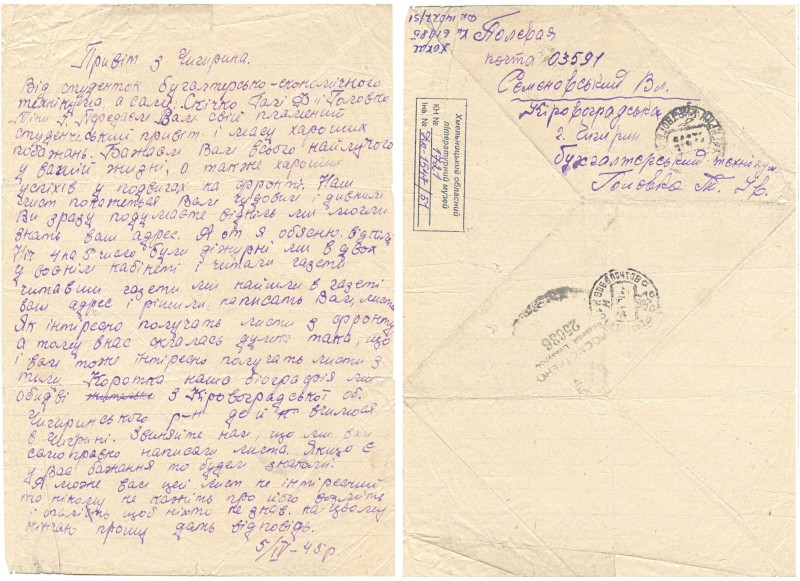 Привіт з Чигирина.
Від студенток бугалтерсько-економічного
технікума, а саме Сн́ічко Галі Ф і Головко
Тіни Г. Передаєм Вам свій пламений
студенческий привіт і масу хароших
побажань. Бажаєм Вам всього найлучого
у вашій жидні, а также хароших
успіхів у подвигах на фронті. Наш
лист покажеться Вам чудовим і дивним
Ви зразу подумаєте відкіль ми могли
знать ваш адрес. А от я обясню. від
Ніч 4 на 5 число були діжурні ми вдвох
у воєннім кабінеті і читали газети
читавши газети ми найшли в газеті
ваш адрес і рішили написать Вам листа
Як інтересно получать листи з фронту
а тому внас склалась думка така, що
і вам тоже інтересно получать листи з
тилу. Коротка наша біографія ми
обидві жительки з Кіровоградської об.
Чигиринського р-н де й вчимося
в Чигрині. Звиняйте нам, що ми вам
самоправно написали листа. Якщо є
у Вас бажання то будем знакомі.
А може вам цей лист не інтересний
то нікому не кажіть про його возміть
і спаліть щоб ніхто не знав. на цьому
кінчаю прошу дать відповідь.
5/IV-45р.
КН 61986
Полевая
почта 03591
Семеновський Вл.
Кіровоградська
г. Чигирин
бухгалтерський технікум
Головка Т. Гр.
Хмельницький обласний
літературний музей
КН № 1761
Інв. №
ПРОСМОТРЕНО
25696